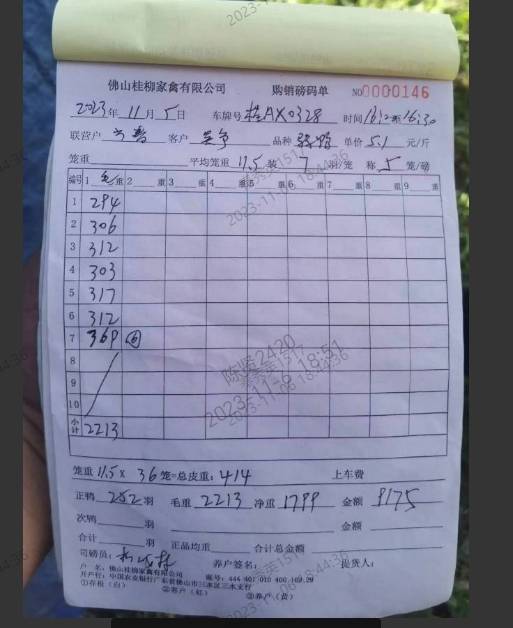 佛山桂柳家禽有限公司 购销磅码单 NO0000146
2023年 11月 5日 车牌号 桂AX0328 时间 16:30
联营户 客户 品种 单价 5.1 元/斤
笼重 平均笼重 11.5 装 7 羽/笼 称 5 笼/磅
编号 1 毛重 2 重 3 重 4 重 5 重 6 重 7 重 8 重 9 重
1 294
2 306
3 312
4 303
5 317
6 312
7 369 ⑥
8
9
10
小计 2213
笼重 11.5 × 36 笼=总皮重: 414 上车费
正鸭 252 羽 毛重 2213 净重 1799 金额 9175
次鸭 羽 金额
合计 羽 正品均重 合计总金额
司磅员: 养户签名: 提货人:
户 名: 佛山桂柳家禽有限公司
开户行: 中国农业银行广东省佛山市三水区三水支行 账号: 444 407 010 400
①存根(白) ②客户(红) ③养户(黄)
陈贤2420
2023-11-06 18:44:36